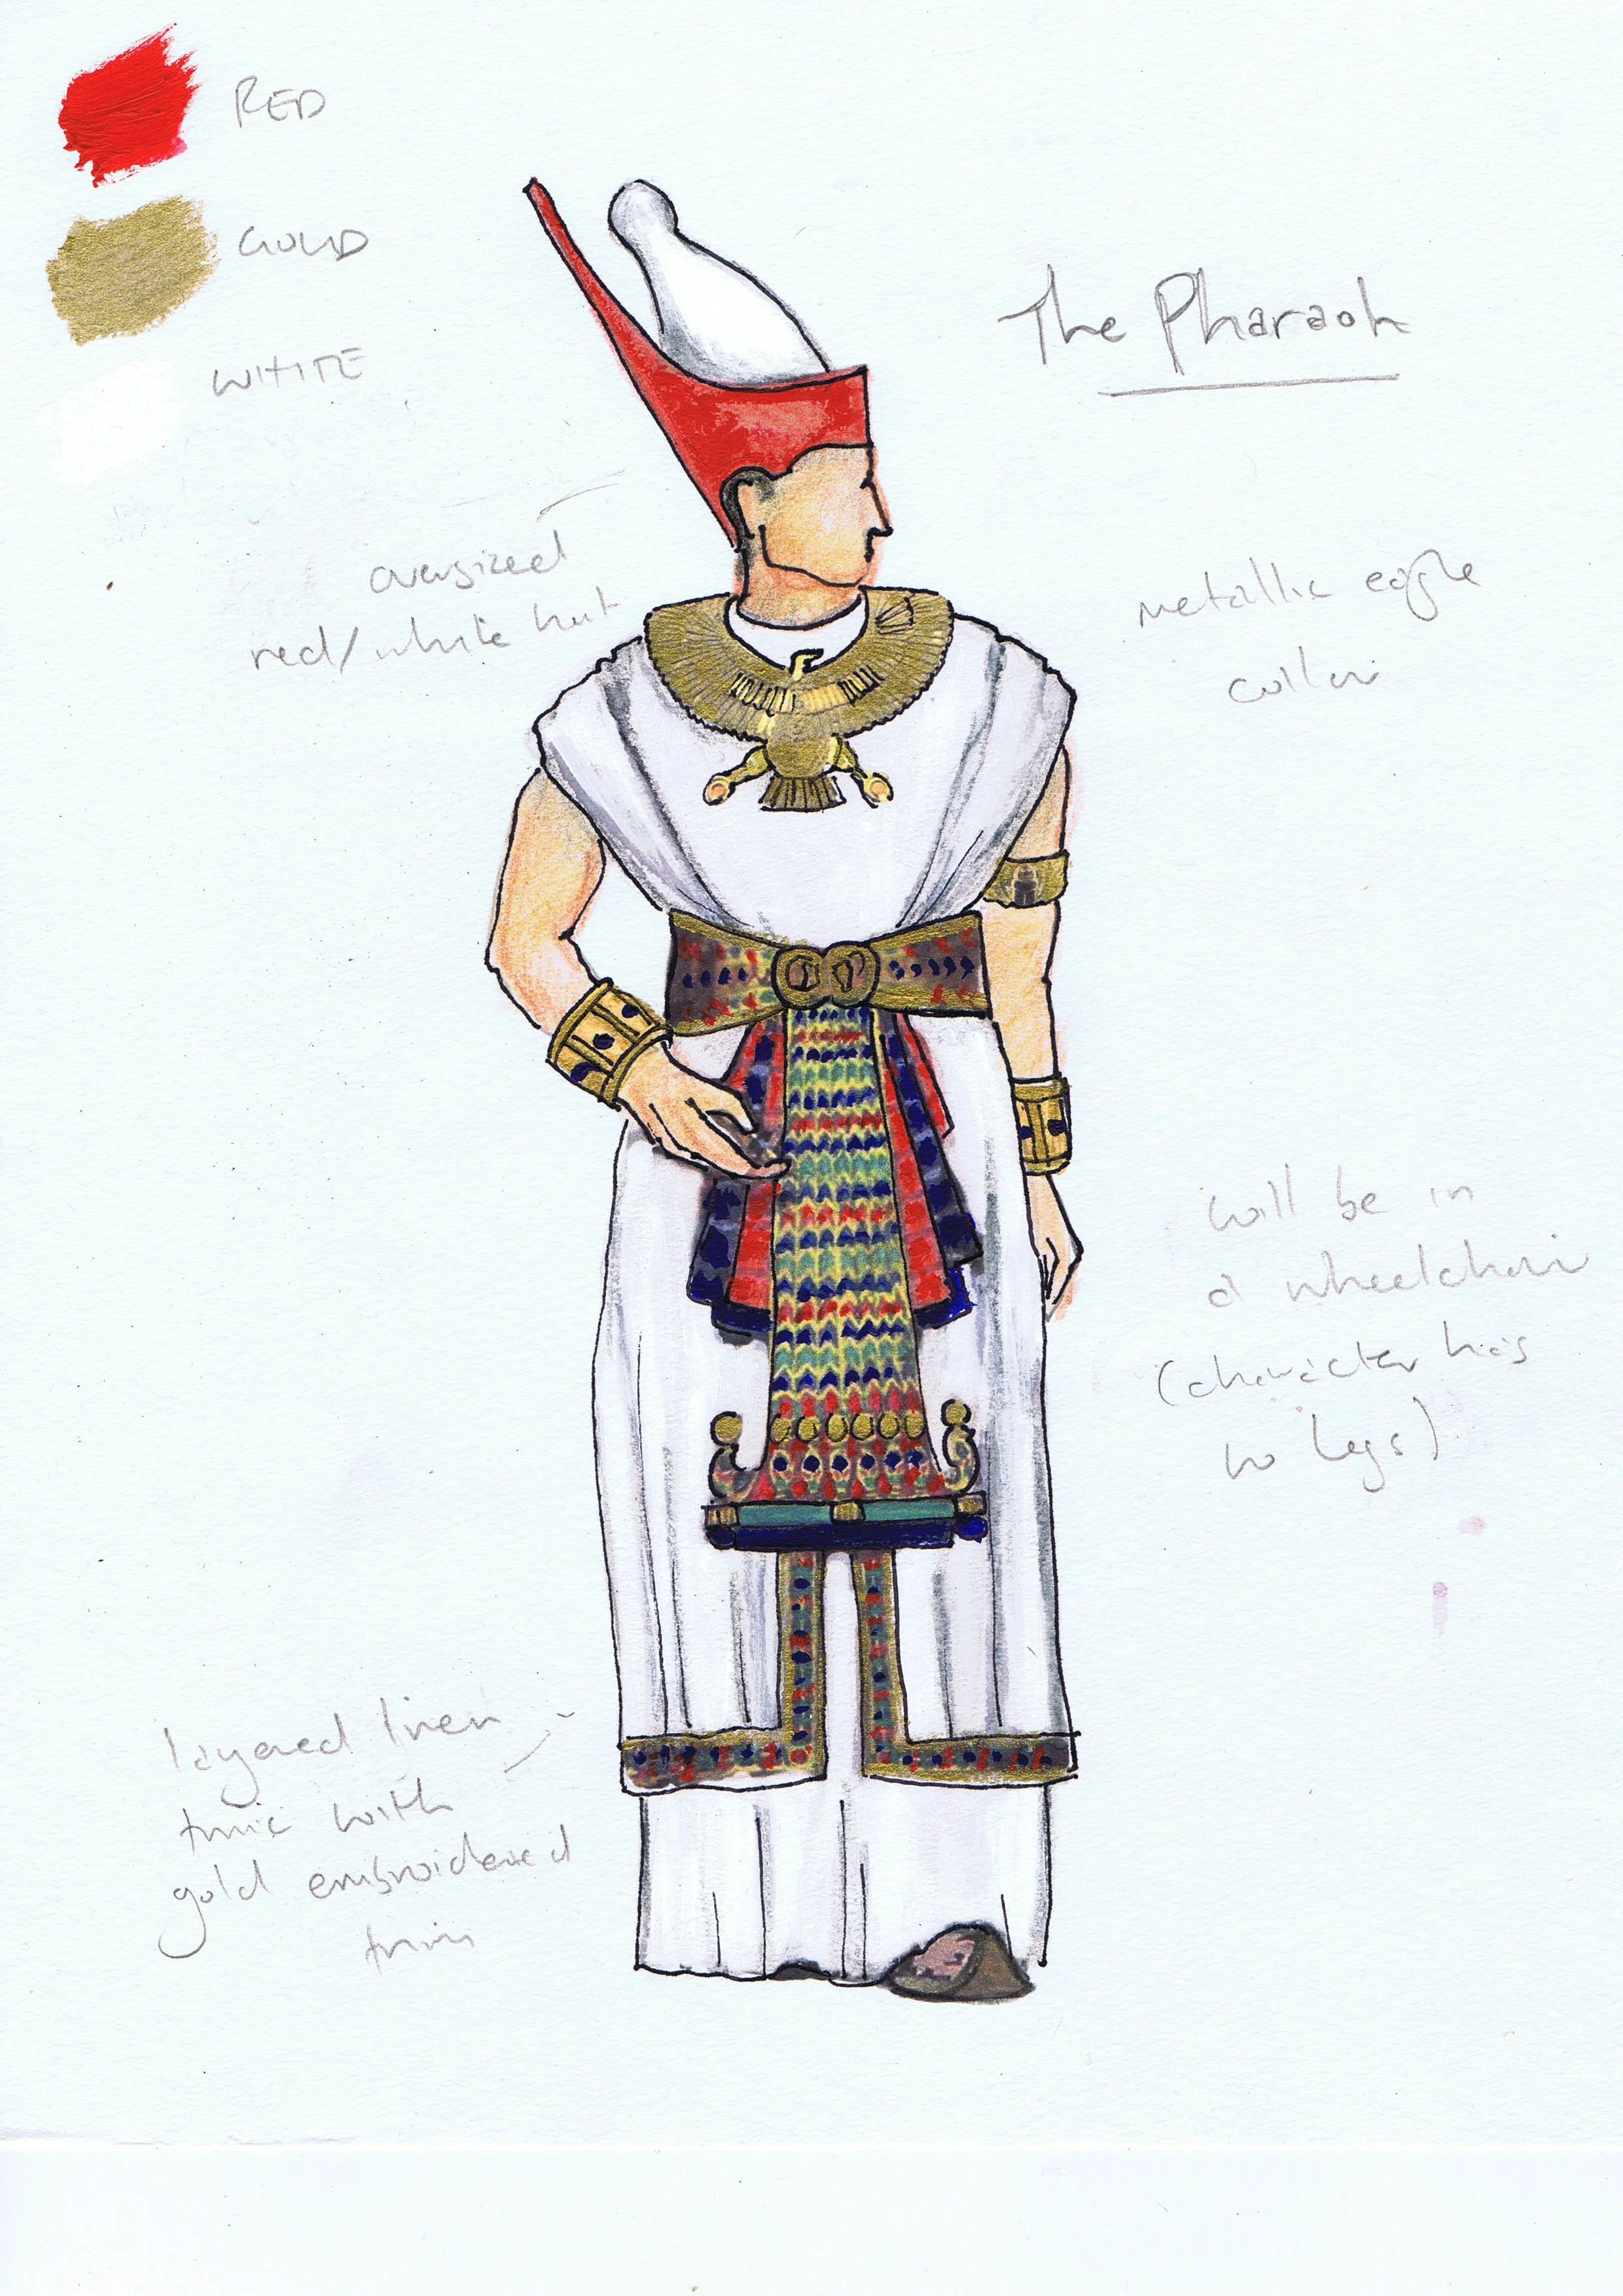 RED
GOLD
WHITE
The Pharaoh
oversized
red/white hat
metallic eagle
collar
will be in
a wheelchair
(character has
no legs)
layered linen
tunic with
gold embroidered
trim